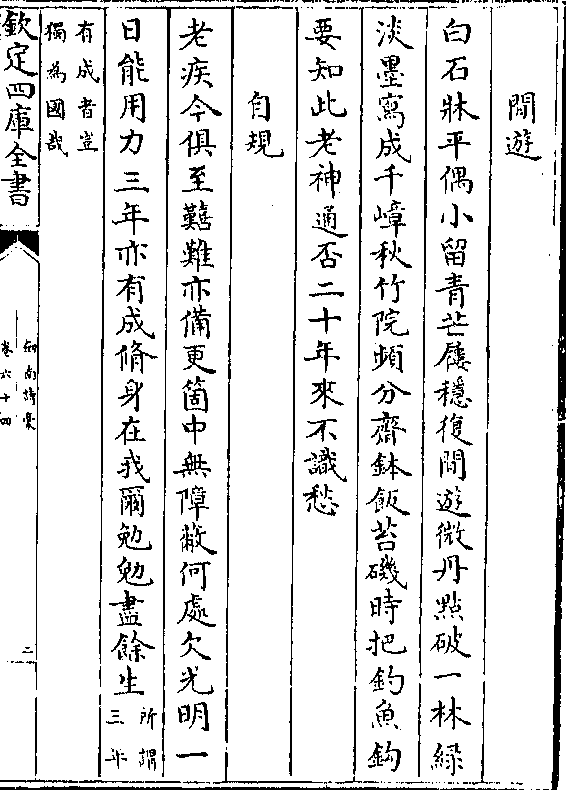 閒遊
白石牀平偶小留青芒屨穩復閒遊微丹點破一林綠
淡墨寫成千嶂秋竹院頻分齋鉢飯苔磯時把釣魚鈎
要知此老神通否二十年來不識愁
自規
老疾今俱至囏難亦備更箇中無障蔽何處欠光明一
日能用力三年亦有成脩身在我爾勉勉盡餘生所謂三年
有成者豈獨為國哉
欽定四庫全書
劍南詩稾
卷六十四
二